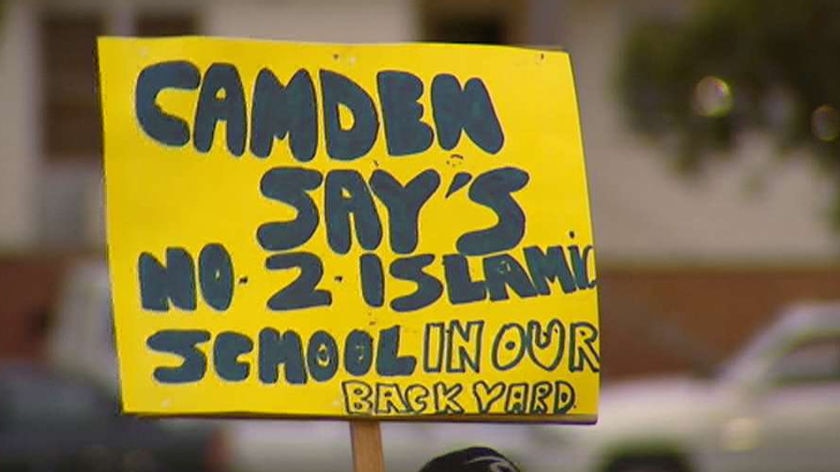 CAMDEN
SAY'S
NO-2-ISLAMIC
SCHOOL IN OUR
BACKYARD